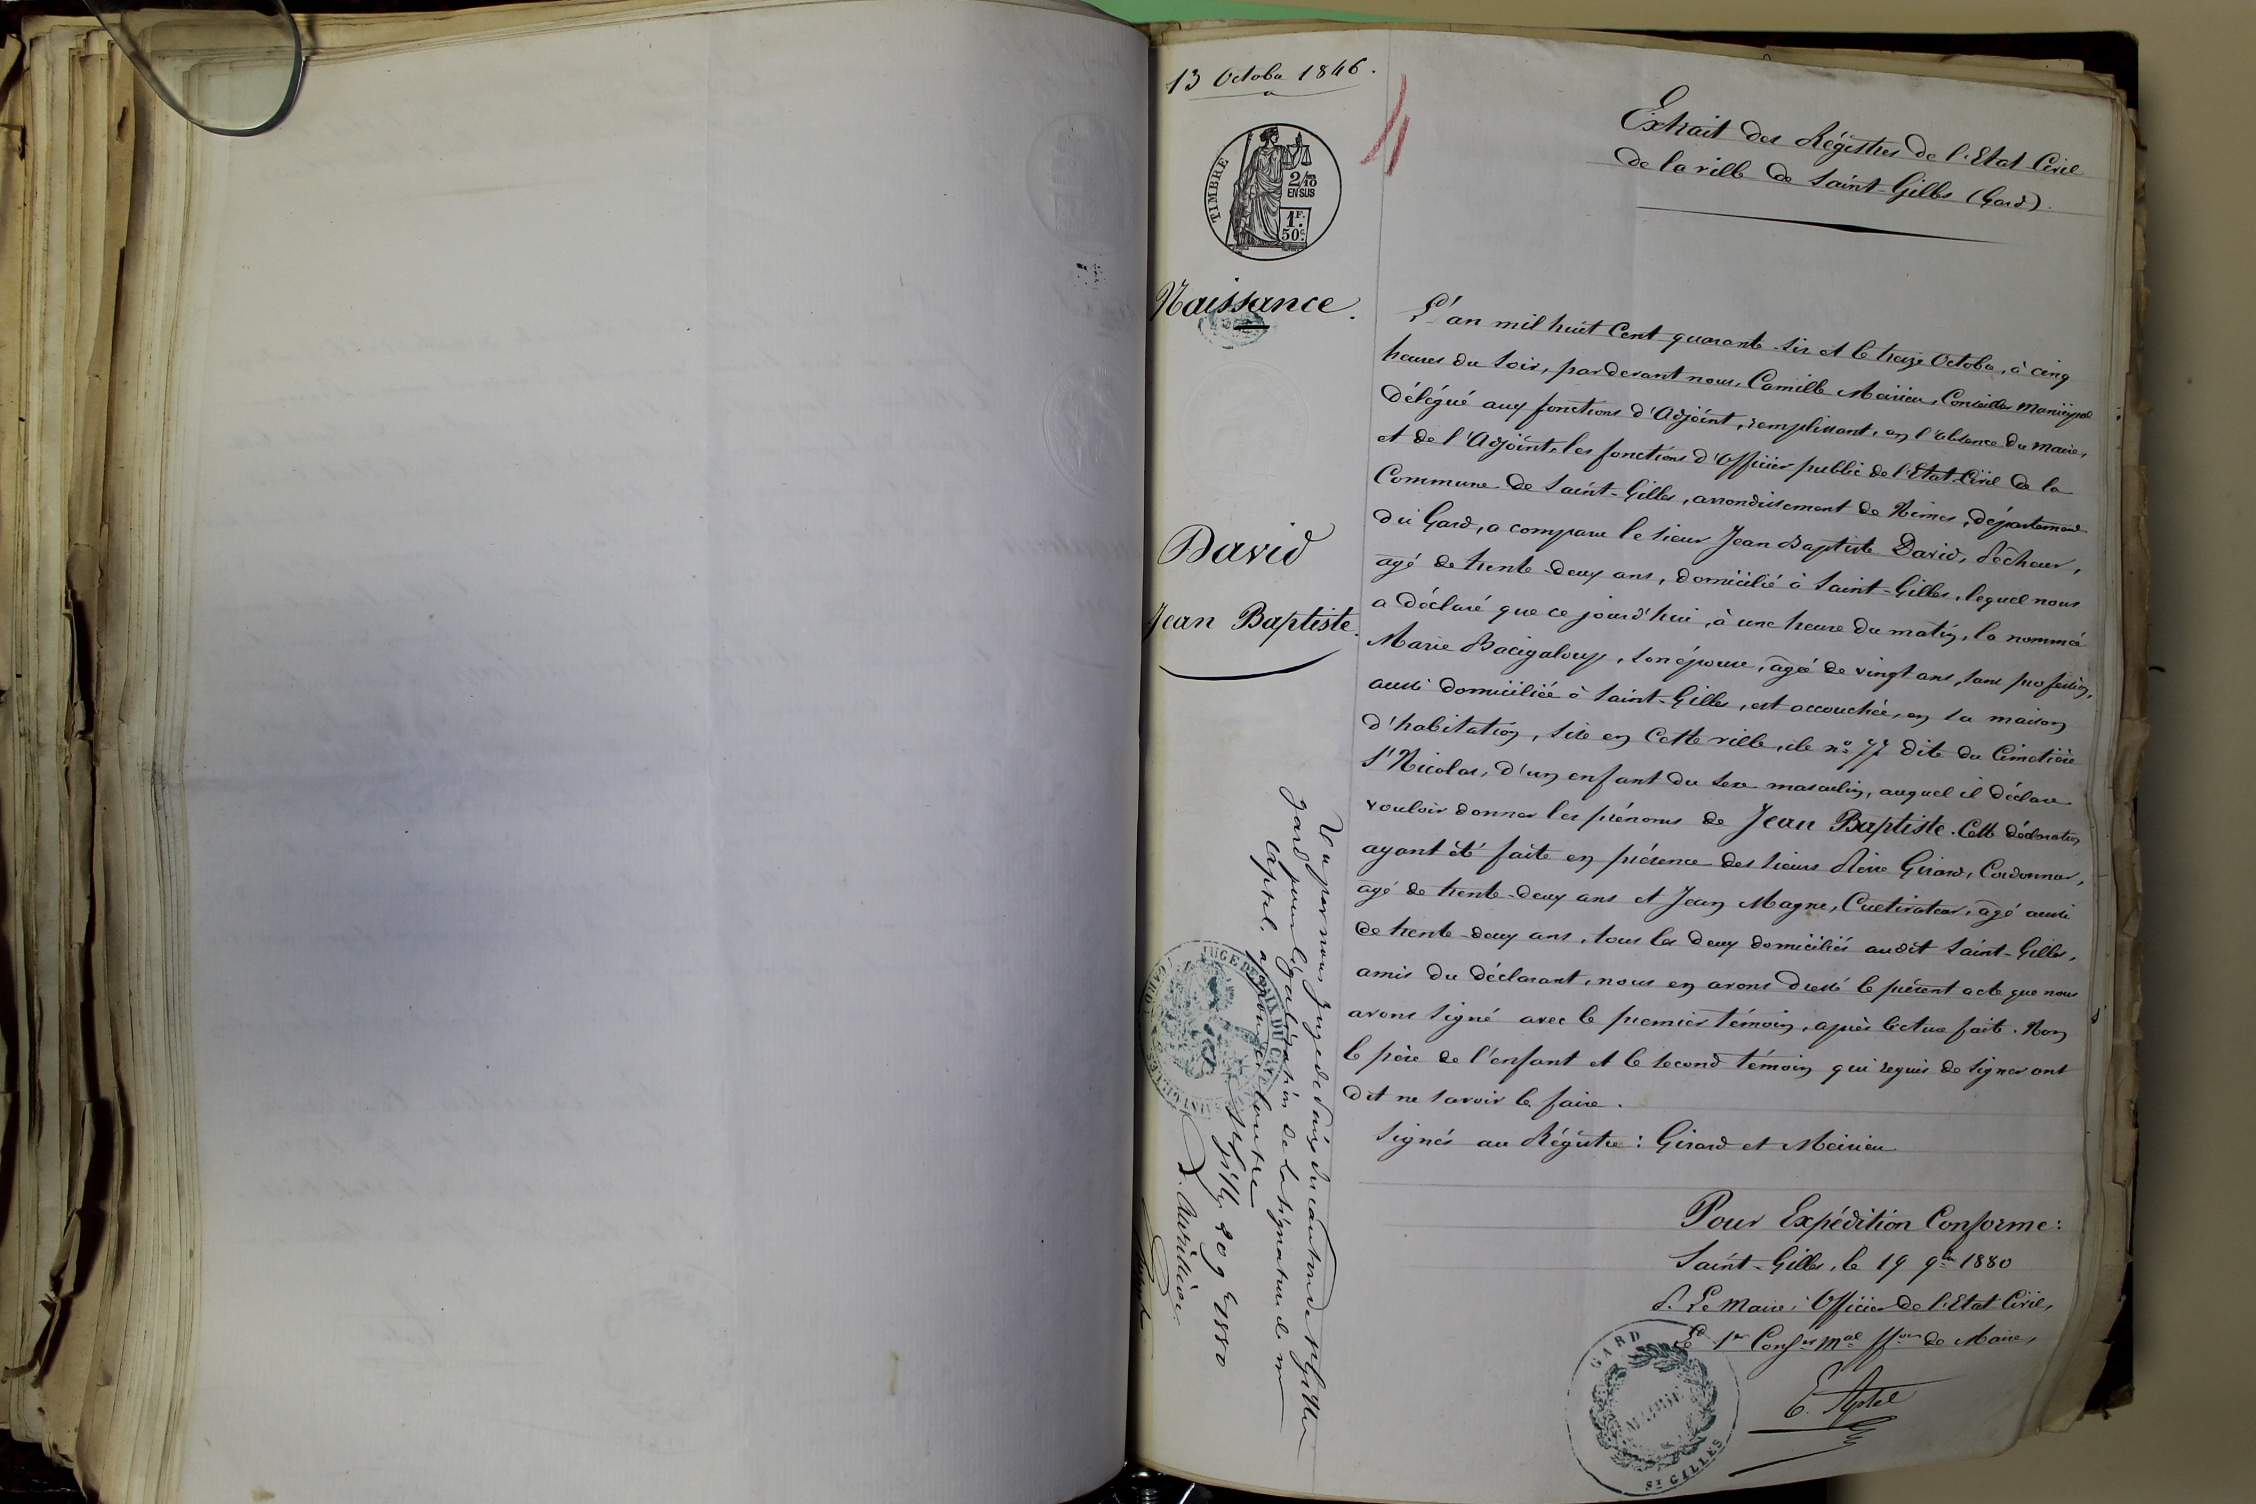 13 Octobre 1846.
TIMBRE
2/10
EN SUS
1F.
50c.
Naissance.
David
Jean Baptiste.
Extrait des Régistres de l'Etat-Civil
de la ville de Saint-Gilles (Gard).
L'an mil huit cent quarante-six et le treize Octobre, à cinq
heures du soir, pardevant nous, Camille Meirieu, Conseiller Municipal
délégué aux fonctions d'Adjoint, remplissant, en l'absence du Maire,
et de l'Adjoint, les fonctions d'Officier public de l'Etat-Civil de la
Commune de Saint-Gilles, arrondissement de Nimes, département
du Gard, a comparu le sieur Jean Baptiste David, Pêcheur,
agé de trente-deux ans, domicilié à Saint-Gilles, lequel nous
a déclaré que ce jourd'hui, à une heure du matin, la nommée
Marie Bacigaloup, son épouse, agée de vingt ans, sans profession,
aussi domiciliée à Saint-Gilles, est accouchée, en sa maison
d'habitation, sise en cette ville, ile no. 77 dite du Cimetière
St Nicolas, d'un enfant du sexe masculin, auquel il déclare
vouloir donner les prénoms de Jean Baptiste. Cette déclaration
ayant été faite en présence des sieurs Pierre Girard, Cordonnier,
agé de trente-deux ans et Jean Magne, Cultivateur, agé aussi
de trente-deux ans, tous les deux domiciliés audit Saint-Gilles,
amis du déclarant, nous en avons dressé le présent acte que nous
avons signé avec le premier témoin, après lecture faite. Non
le père de l'enfant et le second témoin qui requis de signer ont
dit ne savoir le faire.
Signés au Régistre : Girard et Meirieu
Pour Expédition Conforme :
Saint-Gilles, le 19 9bre 1880
P. Le Maire, Officier de l'Etat Civil,
Le 1er Conser Mal ffons de Maire,
E. Aptel
GARD
MAIRIE
ST GILLES
Vu par nous, Juge de Paix du canton de St Gilles
Gard pour légalisation de la signature de mr
Aptel, apposée ci-contre
St Gilles 20 9bre 1880
JUGE DE PAIX DU CANTON